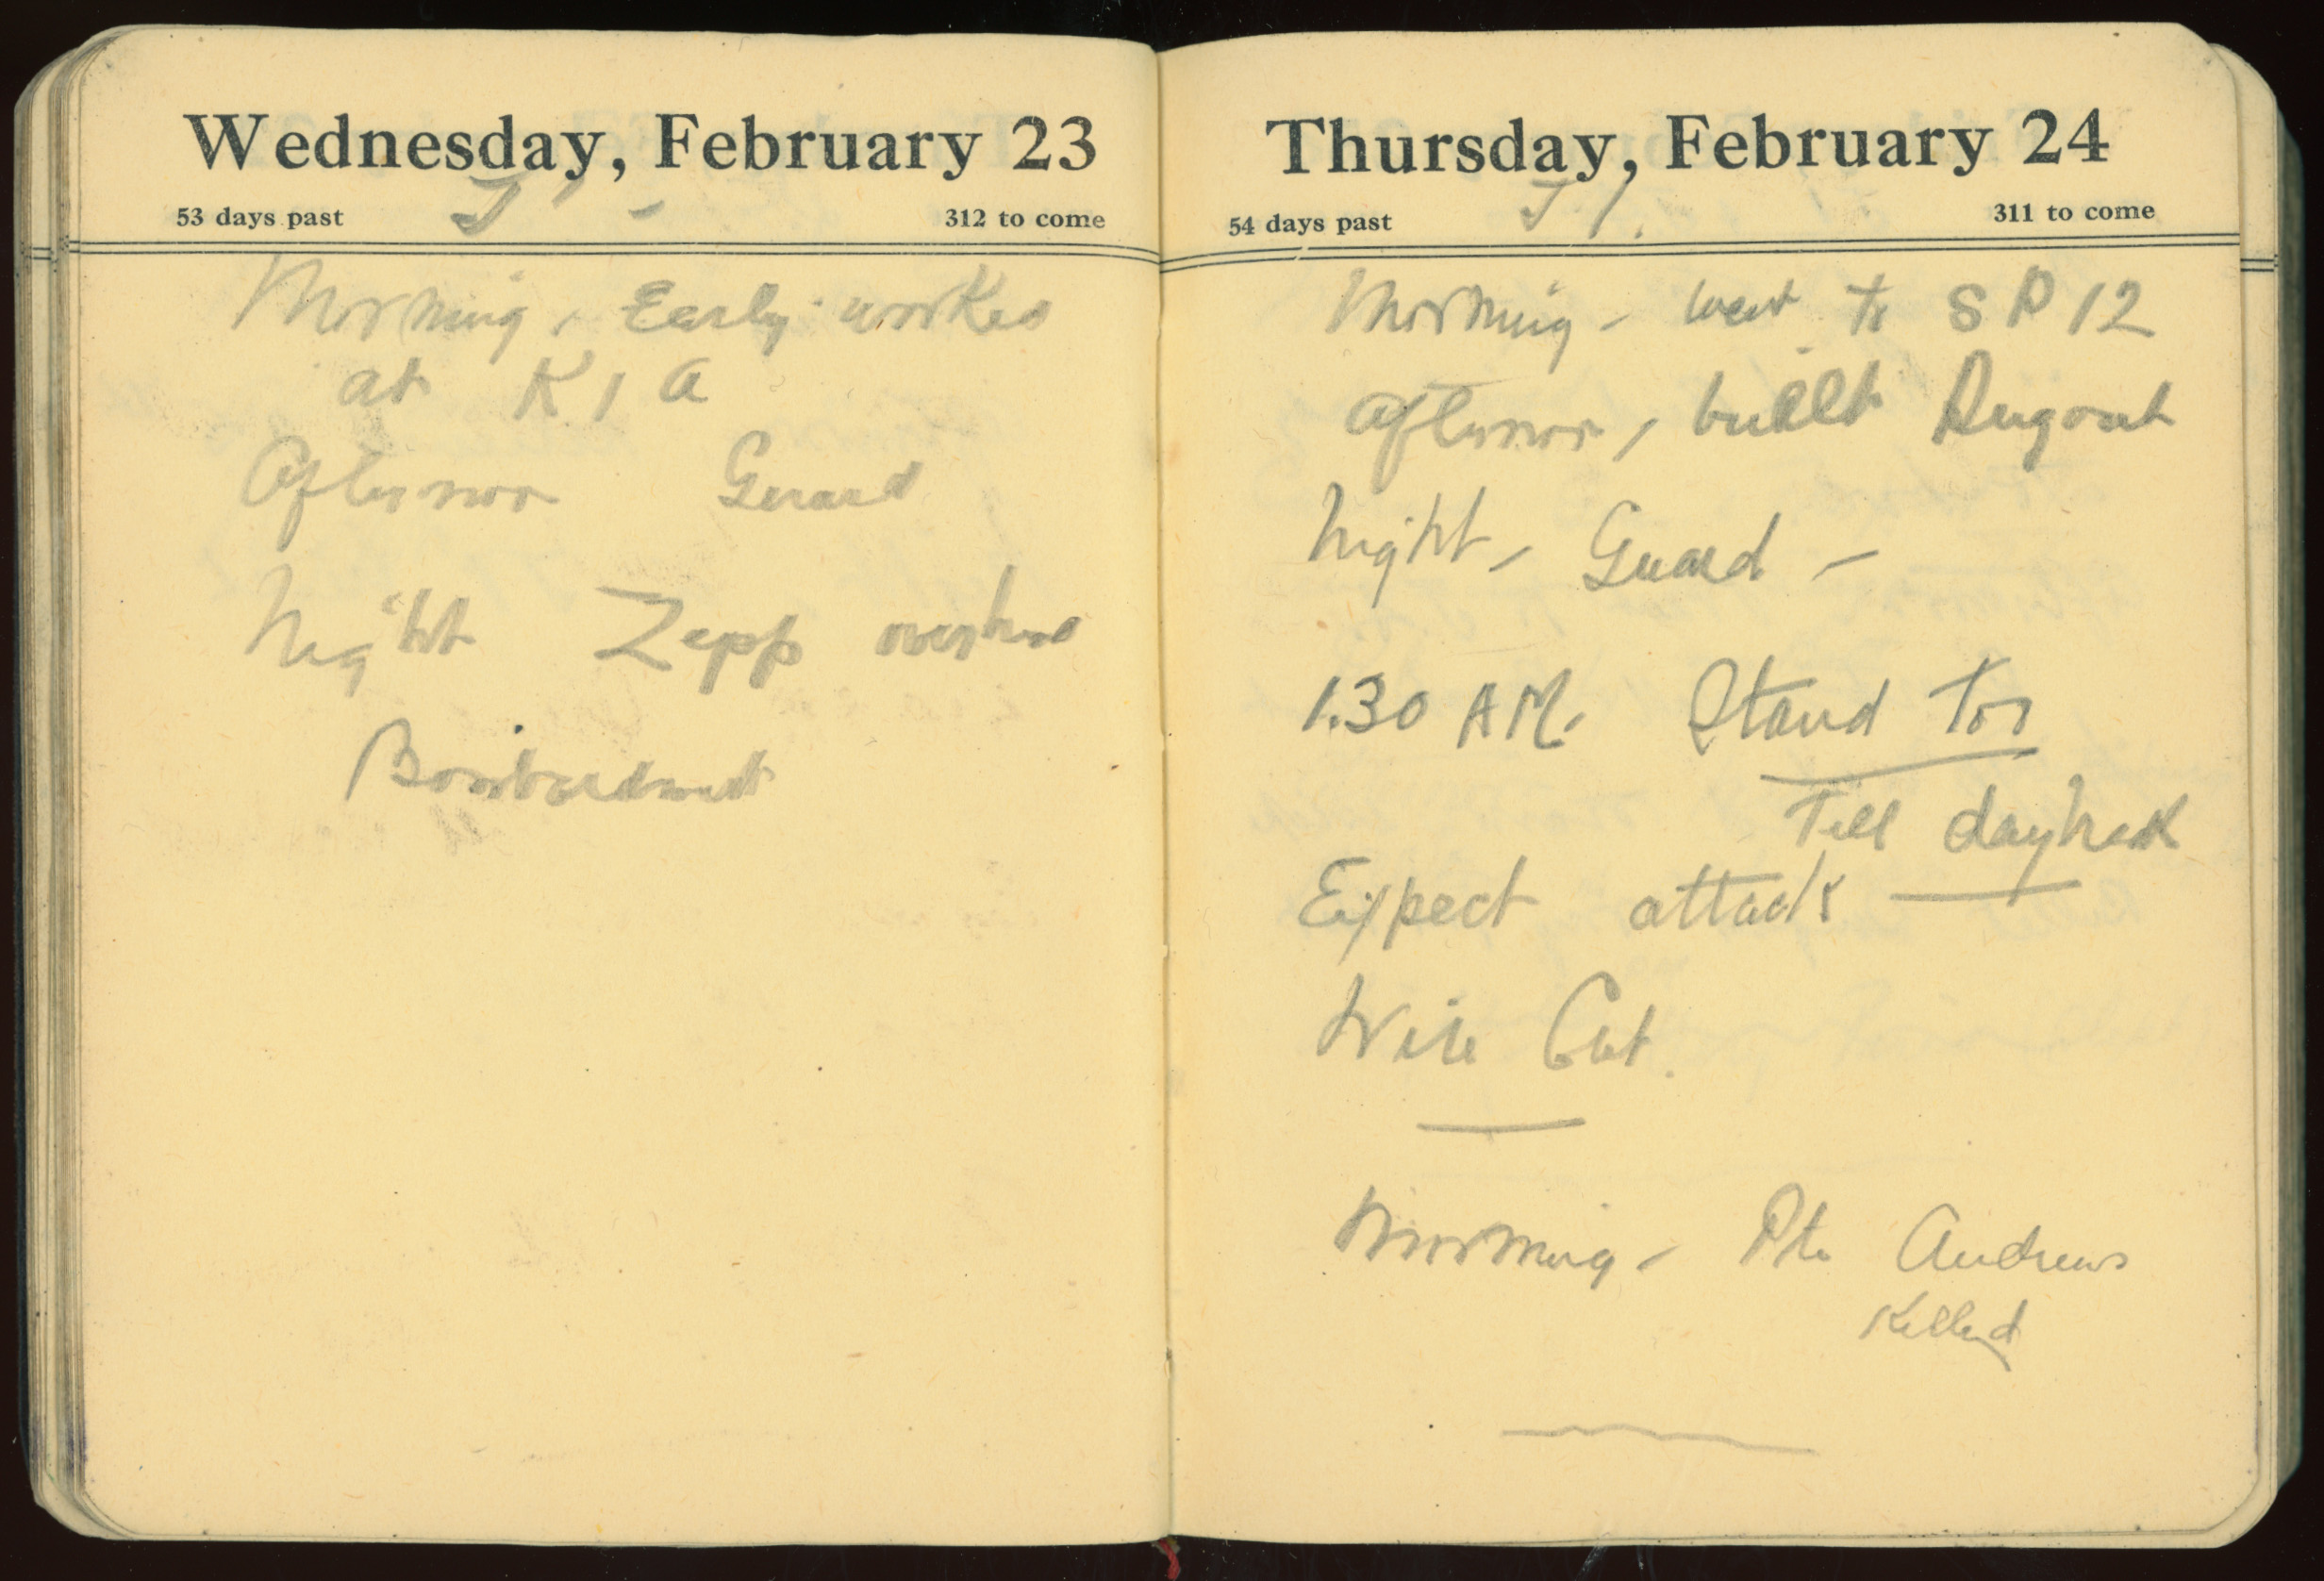 Wednesday, February 23
53 days past
312 to come
Morning, Early worked
at K 1 A
Afternoon Guard
Night Zepp overhead
Bombardment
Thursday, February 24
54 days past
311 to come
Morning - went to S P 12
Afternoon, built Dugout
Night, Guard -
1.30 AM. Stand Too
Till daybreak
Expect attack
Wire Cut.
Morning - Pte Andrews
Killed